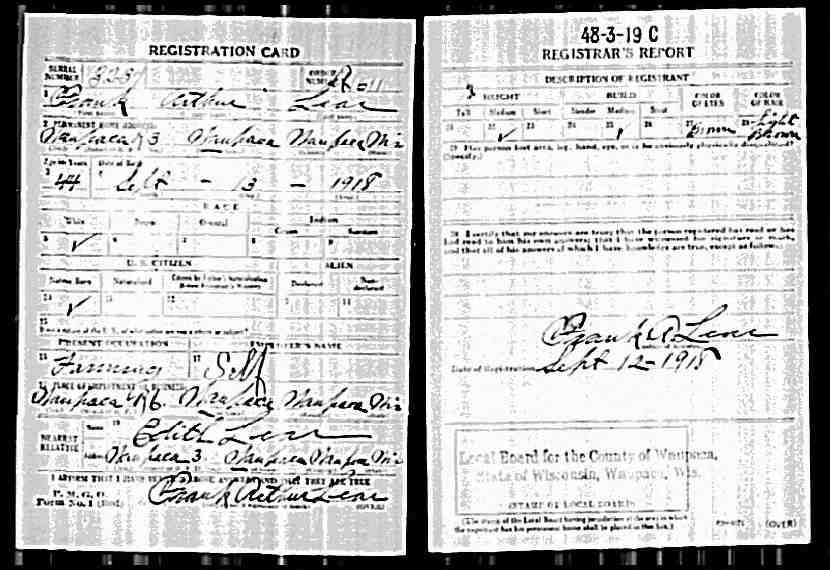 REGISTRATION CARD
SERIAL NUMBER
ORDER NUMBER
1 Frank Arthur Lear
2 PERMANENT HOME ADDRESS:
Waupaca 3 Waupaca Waupaca Wis
Age in Years Date of Birth
3 44 Sept - 13 - 1918
RACE
White Negro Oriental Indian
Citizen
5 ✓ 6 7 8 9
U. S. CITIZEN ALIEN
Native Born Naturalized Citizen by Father's Naturalization Before Registrant's Majority Declarant Non-declarant
10 ✓ 11 12
15
If not a citizen of the U. S., of what nation are you a citizen or subject?
PRESENT OCCUPATION EMPLOYER'S NAME
16 Farming 17 Self
18 PLACE OF EMPLOYMENT OR BUSINESS:
Waupaca Waupaca Waupaca Wis
NEAREST RELATIVE
Name 19 Edith Lear
Address Waupaca 3 Waupaca Waupaca Wis
I AFFIRM THAT I HAVE VERIFIED ABOVE ANSWERS AND THAT THEY ARE TRUE
P. M. G. O.
Form No. 1 (Red)
Frank Arthur Lear
(OVER)
48-3-19 C
REGISTRAR'S REPORT
DESCRIPTION OF REGISTRANT
HEIGHT BUILD COLOR OF EYES COLOR OF HAIR
Tall Medium Short Slender Medium Stout
21 22 ✓ 23 24 25 26 27 Brown 28 Light Brown
29 Has person lost arm, leg, hand, eye, or is he obviously physically disqualified?
(Specify.)
30 I certify that my answers are true; that the person registered has read or has
had read to him his own answers; that I have witnessed his signature or mark,
and that all of his answers of which I have knowledge are true, except as follows:
Frank A Lear
Date of Registration Sept 12 - 1918
Local Board for the County of Waupaca,
State of Wisconsin, Waupaca, Wis.
(STAMP OF LOCAL BOARD)
(The stamp of the Local Board having jurisdiction of the area in which
the registrant has his permanent home shall be placed in this box.)
(OVER)